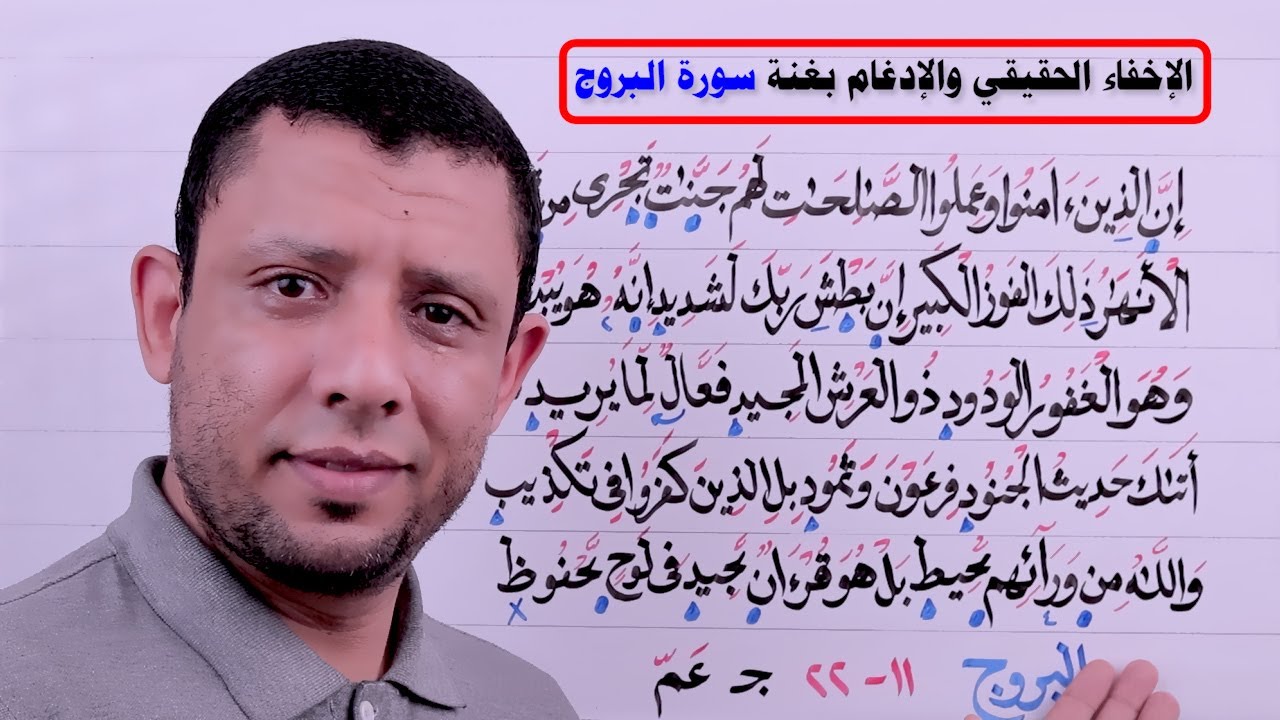 الإخفاء الحقيقي والإدغام بغنة سورة البروج
إِنَّ الَّذِينَ ءَامَنُوا وَعَمِلُوا الصَّـٰلِحَـٰتِ لَهُمْ جَنَّـٰتٌ تَجْرِى مِن
الْأَنْهَـٰرُ ذَٰلِكَ الْفَوْزُ الْكَبِيرُ إِنَّ بَطْشَ رَبِّكَ لَشَدِيدٌ إِنَّهُۥ هُوَ
وَهُوَ الْغَفُورُ الْوَدُودُ ذُو الْعَرْشِ الْمَجِيدُ فَعَّالٌ لِّمَا يُرِيدُ
أَتَىٰكَ حَدِيثُ الْجُنُودِ فِرْعَوْنَ وَثَمُودَ بَلِ الَّذِينَ كَفَرُوا فِى تَكْذِيبٍ
وَاللَّهُ مِن وَرَآئِهِم مُّحِيطٌ بَلْ هُوَ قُرْءَانٌ مَّجِيدٌ فِى لَوْحٍ مَّحْفُوظٍ
البروج ١١-٢٢ جـ عَمّ